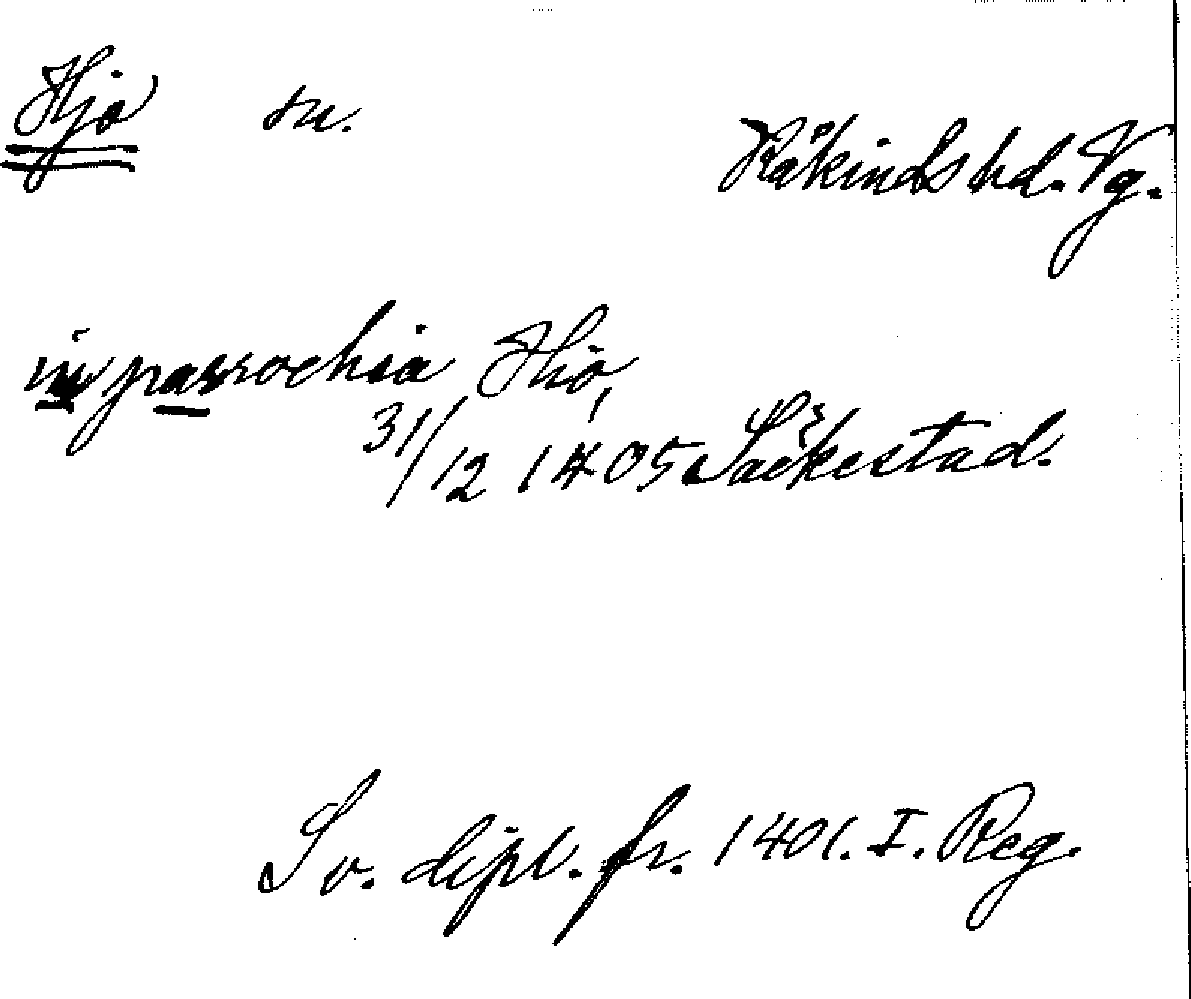 Hjo sn.
Kåkinds hd. Vg.
in parrochia Hio,
31/12 1405 Säckestad.
Sv. dipl. fr. 1401. I. Reg.